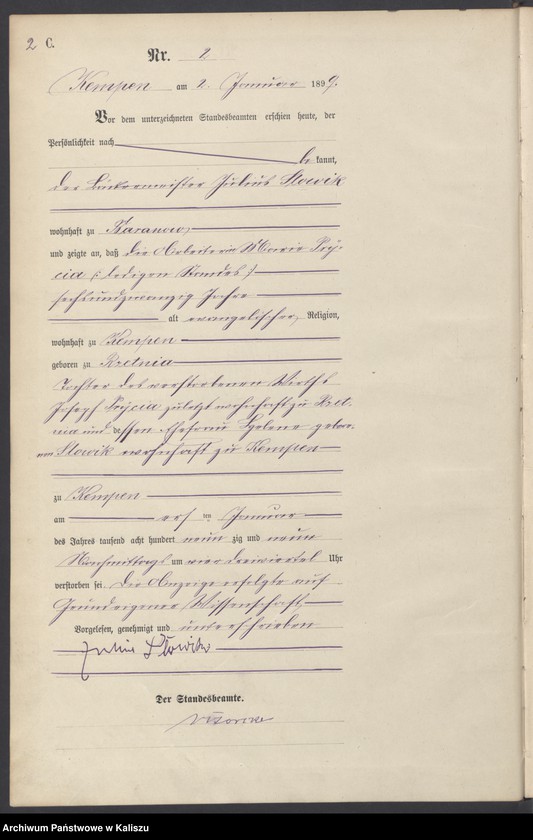 2 C.
Nr. 2
Kempen am 2. Januar 1899.
Vor dem unterzeichneten Standesbeamten erschien heute, der
Persönlichkeit nach
be kannt,
der Bäckermeister Julius Slowik
wohnhaft zu Baranow,
und zeigte an, daß die Arbeiterin Marie
cia (: ledigen Standes:)
sechsundzwanzig Jahre
alt evangelischer Religion,
wohnhaft zu Kempen
geboren zu Rzetnia
Tochter des verstorbenen Wirths
Joseph zuletzt wohnhaft zu Rzet-
nia und dessen Ehefrau Helene gebor-
nen Slowik wohnhaft zu Kempen
zu Kempen
am ersten Januar
des Jahres tausend acht hundert neun zig und neun
Nachmittags um vier dreiviertel Uhr
verstorben sei. Die Anzeige erfolgte auf
Grund eigener Wissenschaft.
Vorgelesen, genehmigt und unterschrieben
Julius Slowik
Der Standesbeamte.
Archiwum Państwowe w Kaliszu